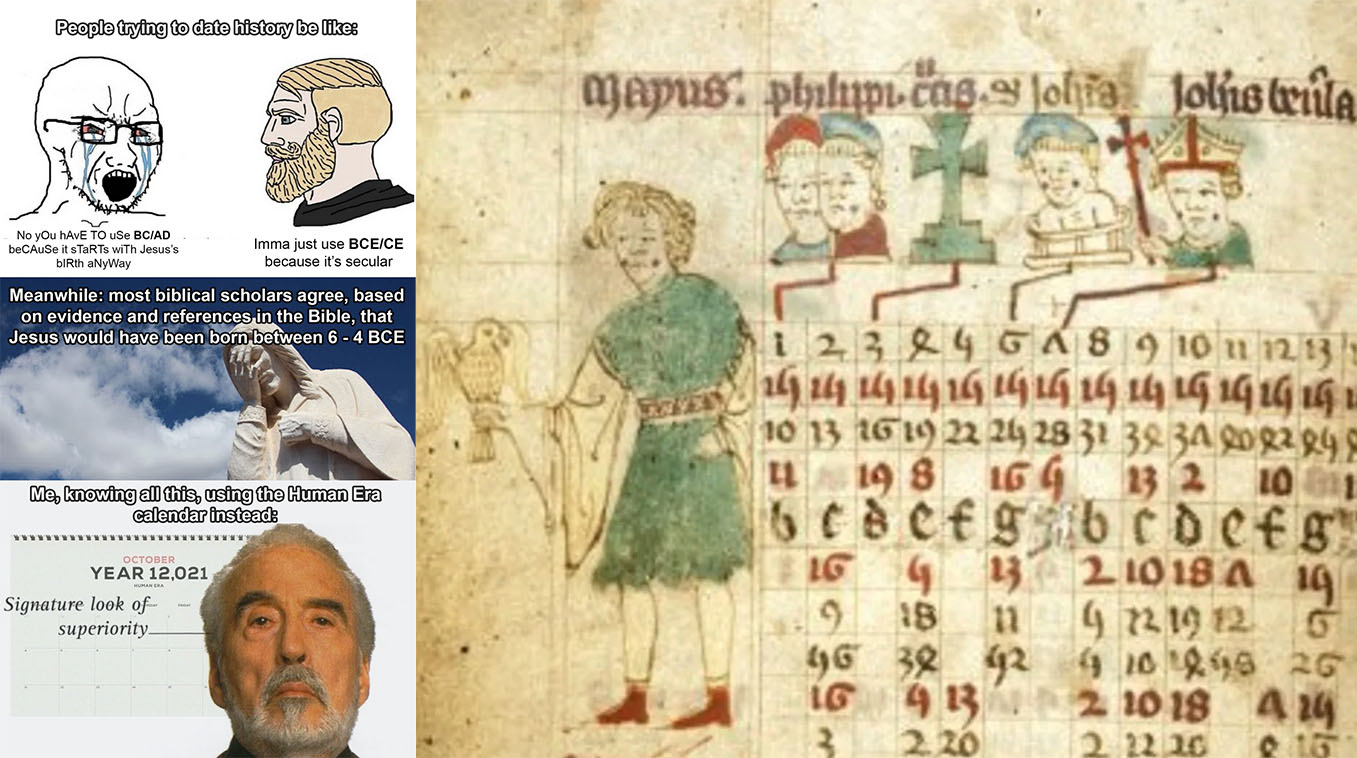 People trying to date history be like:
No yOu hAvE TO uSe BC/AD
beCAuSe it sTaRTs wiTh Jesus's
bIRth aNyWay
Imma just use BCE/CE
because it's secular
Meanwhile: most biblical scholars agree, based
on evidence and references in the Bible, that
Jesus would have been born between 6 - 4 BCE
Me, knowing all this, using the Human Era
calendar instead:
OCTOBER
YEAR 12,021
HUMAN ERA
Signature look of
superiority
Mayus. philippi. & Johis Johis
1 2 3 4 5 6 7 8 9 10 11 12 13
15 15 15 15 15 15 15 15 15 15 15 15 15
10 13 16 19 22 25 28 31 34 37 40 42 45
11 19 8 16 5 13 2 10
b c d e f g b c d e f g
16 5 13 2 10 18 7 15
9 18 11 5 22 19 12 6
56 34 52 5 10 26
16 5 13 2 10 18 7 15
3 2 20 2 22 26